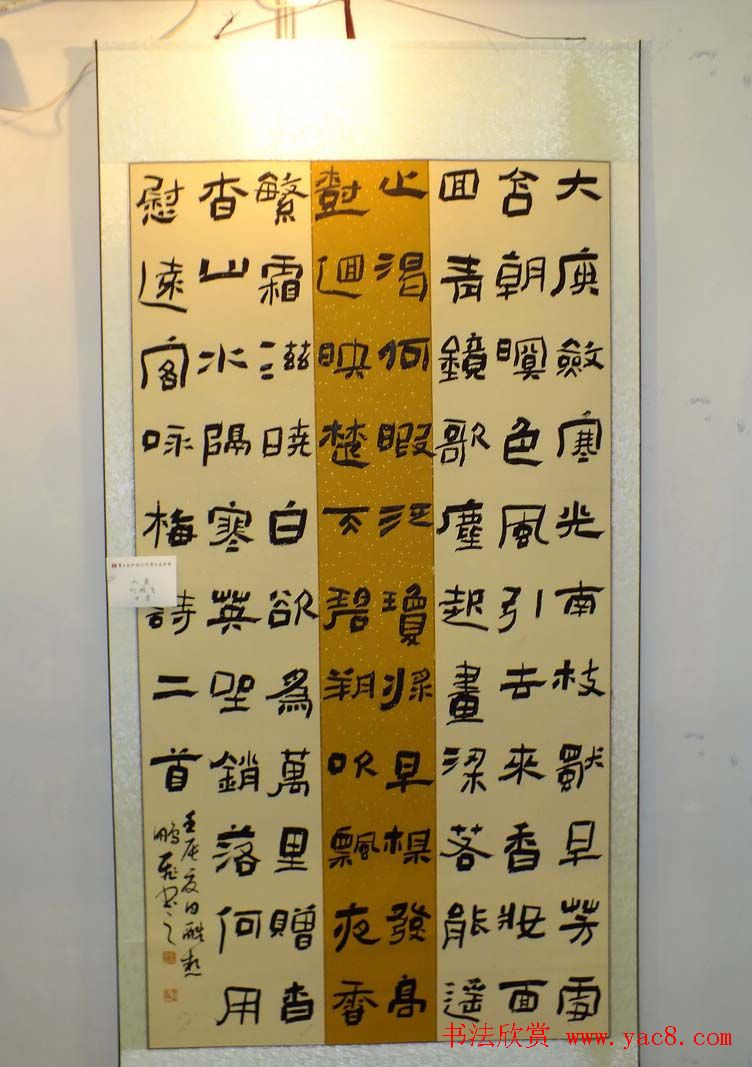 大庾斂寒光南枝獸早芳雪
含朝暝色風引去來香妝面
回青鏡歌塵起畫梁若能遥
止渴何暇泛瓊漿早楳發高
樹迴映楚天碧朔吹飄夜香
繁霜滋曉白欲為萬里贈杳
杳山水隔寒英坐銷落何用
慰遠客咏梅詩二首
壬辰夏日酷热
鵬飛書之
书法欣赏 www.yac8.com